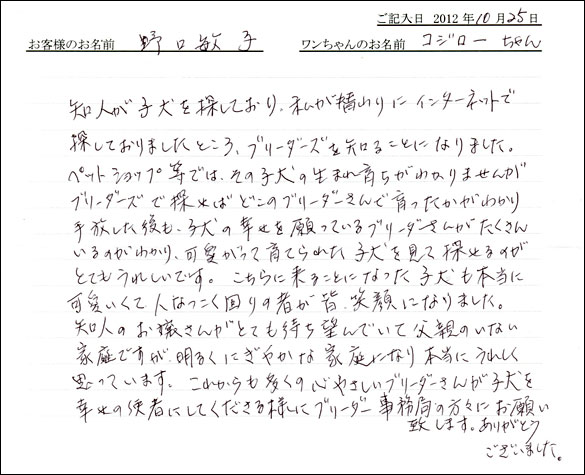 ご記入日 2012年10月25日
お客様のお名前 野口敏子 ワンちゃんのお名前 コジローちゃん
知人が子犬を探しており、私が替わりにインターネットで
探しておりましたところ、ブリーダーズを知ることになりました。
ペットショップ等では、その子犬の生まれ育ちがわかりませんが
ブリーダーズで探せばどこのブリーダーさんで育ったかがわかり
手放した後も、子犬の幸せを願っているブリーダーさんがたくさん
いるのがわかり、可愛がって育てられた子犬を見て探せるのが
とてもうれしいです。 こちらに来ることになった子犬も本当に
可愛いくて人なつこく回りの者が皆、笑顔になりました。
知人のお嬢さんがとても待ち望んでいて父親のいない
家庭ですが、明るくにぎやかな家庭になり本当にうれしく
思っています。 これからも多くの心やさしいブリーダーさんが子犬を
幸せの使者にしてくださる様にブリーダー事務局の方々にお願い
致します。ありがとう
ございました。